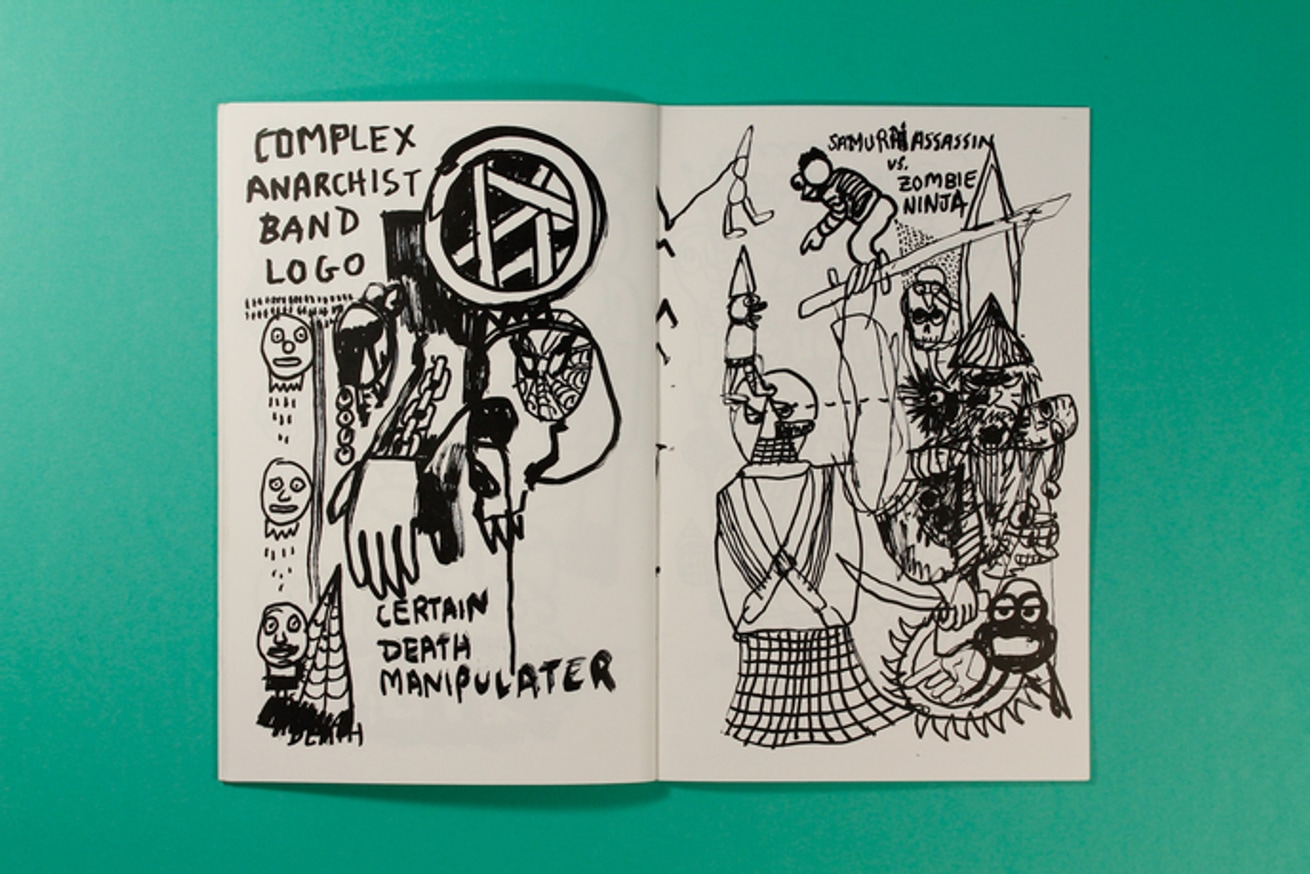 COMPLEX
ANARCHIST
BAND
LOGO
CERTAIN
DEATH
MANIPULATER
DEATH
SAMURAI ASSASSIN
VS.
ZOMBIE
NINJA